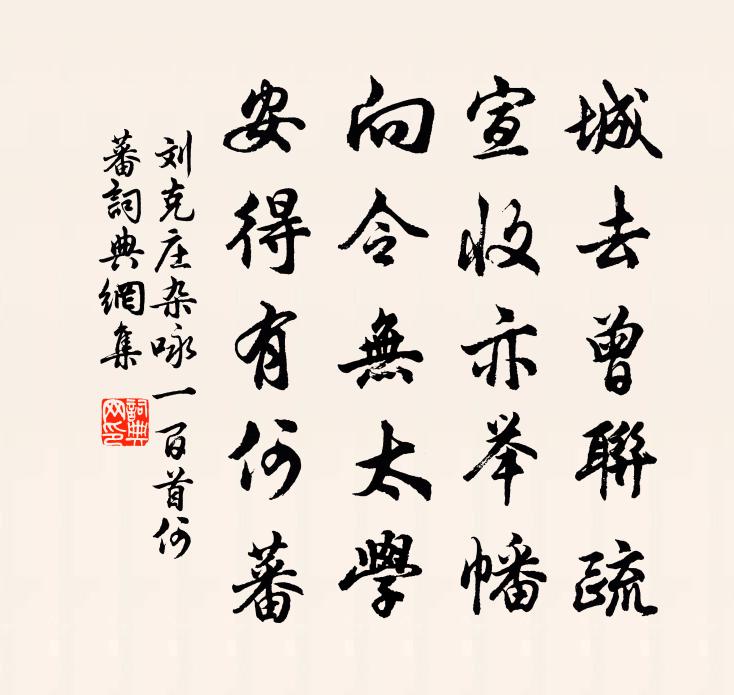 城去曾聯疏
宣收亦举幡
向令無太學
安得有何蕃
刘克庄杂咏一百首何
蕃詞典網集
詞典網印